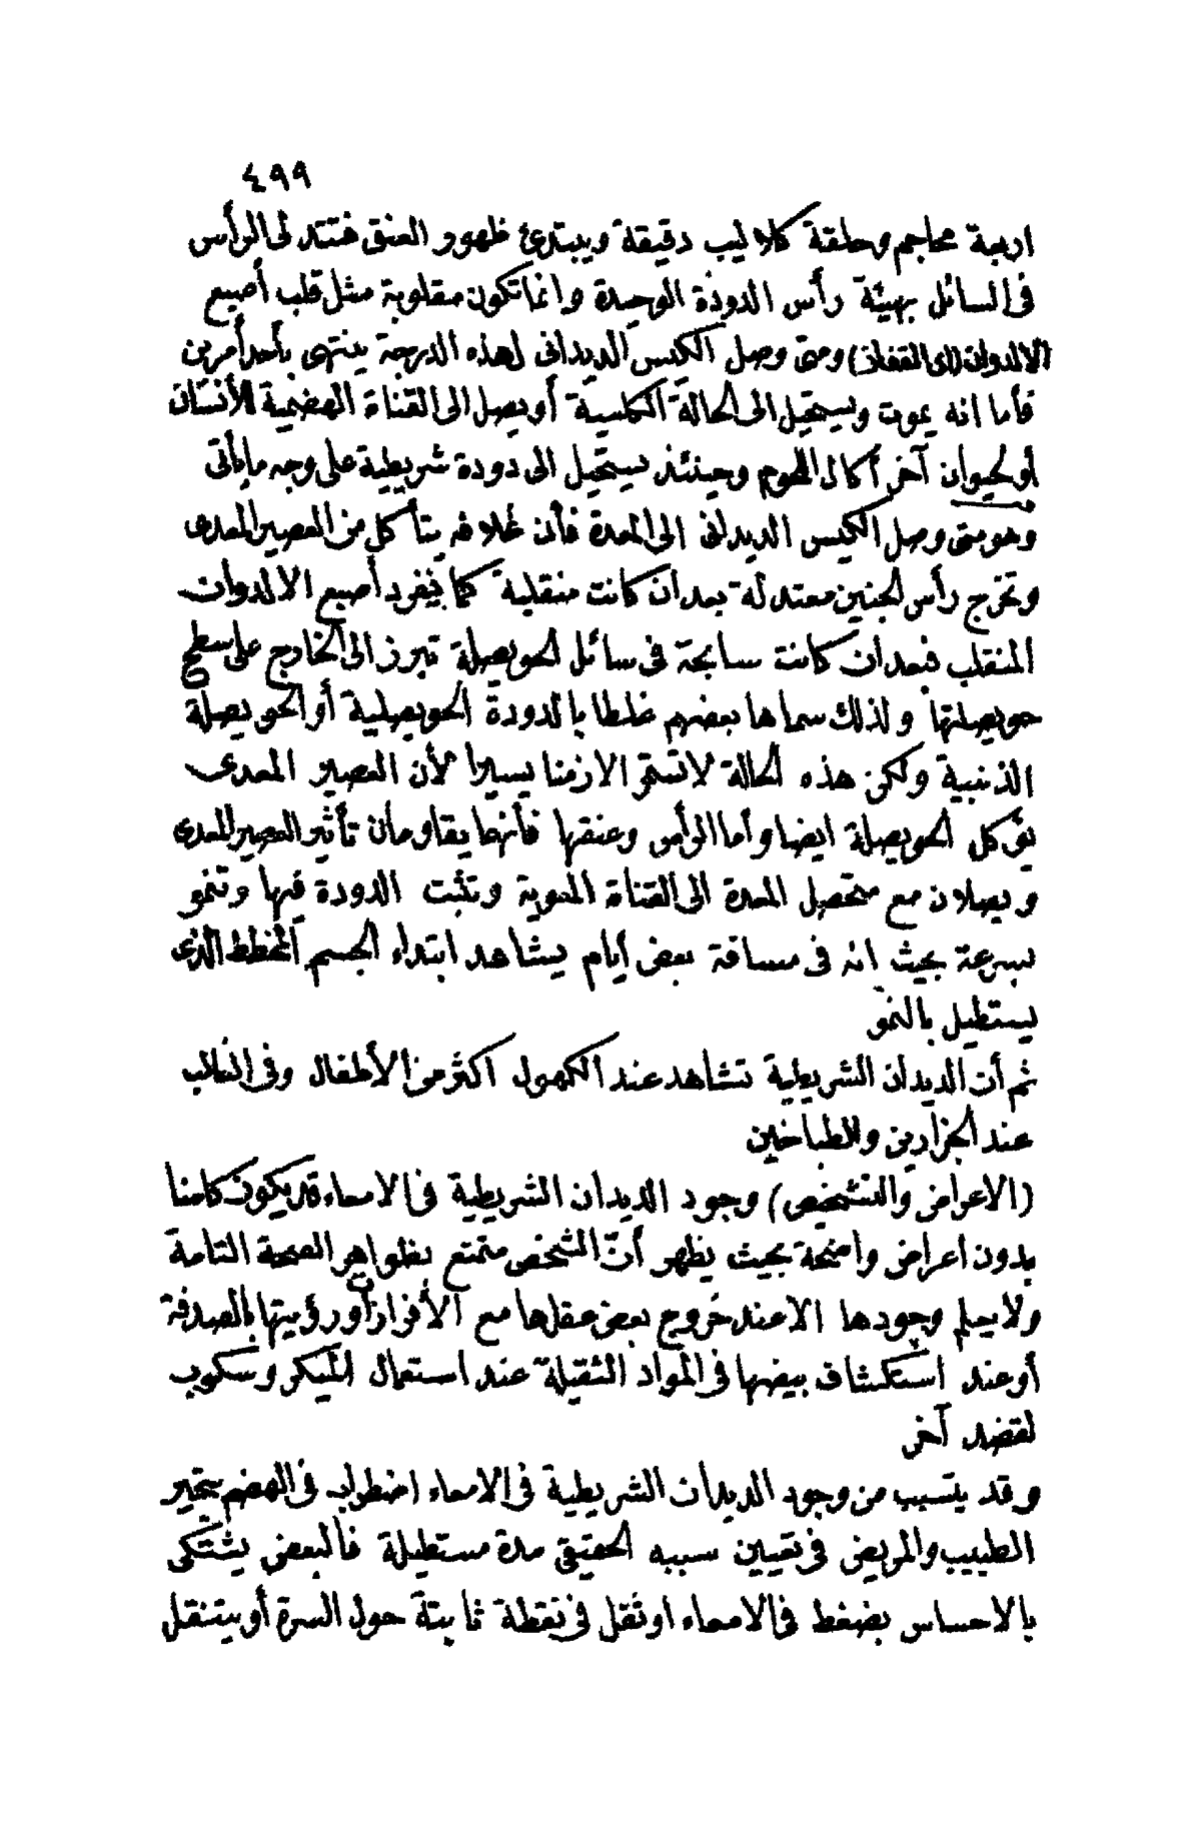 ٤٩٩
اربعة محاجم وحلقة كلاليب دقيقة ويبتدئ ظهور العنق فتتدلى الرأس
فى السائل بهيئة رأس الدودة الوحيدة وانما تكون مقلوبة مثل قلب أصبع
الالدوان (اى القفاز) ومتى وصل الكيس الديدانى لهذه الدرجة ينتهى بأحد أمرين
فأما انه يموت ويستحيل الى الحالة الكلسية أو يصل الى القناة الهضمية للأنسان
أو لحيوان آخر أكال اللحوم وحينئذ يستحيل الى دودة شريطية على وجه ما يأتى
وهو متى وصل الكيس الديدانى الى المعدة فأن غلافه يتأكل من العصير المعدى
وتخرج رأس الجنين معتدلة بعد ان كانت منقلبة كما ينفرد أصبع الالدوان
المنقلب فبعد ان كانت سابحة فى سائل الحويصلة تبرز الى الخارج على سطح
حويصلتها ولذلك سماها بعضهم غلطا بالدودة الحويصلية أو الحويصلة
الذنبية ولكن هذه الحالة لا تستمر الا زمنا يسيرا لأن العصير المعدى
يؤكل الحويصلة ايضا وأما الرأس وعنقها فأنهما يقاومان تأثير العصير المعدى
ويصلان مع متحصل المعدة الى القناة المعوية وتثبت الدودة فيها وتنمو
بسرعة بحيث انه فى مسافة بعض أيام يشاهد ابتداء الجسم المخطط الذى
يستطيل بالنمو
ثم أن الديدان الشريطية تشاهد عند الكهول اكثر من الأطفال وفى الغالب
عند الجزارين والطباخين
(الاعراض والتشخيص) وجود الديدان الشريطية فى الامعاء قد يكون كامنا
بدون اعراض واضحة بحيث يظهر أنّ الشخص متمتع بظواهر الصحة التامة
ولا يعلم وجودها الا عند خروج بعض عقلها مع الأفرازات أو رؤيتها بالصدفة
أو عند استكشاف بيضها فى المواد الثقيلة عند استعمال الميكروسكوب
لقصد آخر
وقد يتسبب من وجود الديدان الشريطية فى الامعاء اضطراب فى الهضم يتحير
الطبيب والمريض فى تعيين سببه الحقيقى مدة مستطيلة فالبعض يشتكى
بالاحساس بضغط فى الامعاء او ثقل فى نقطة ثابتة حول السرة أو يتنقل